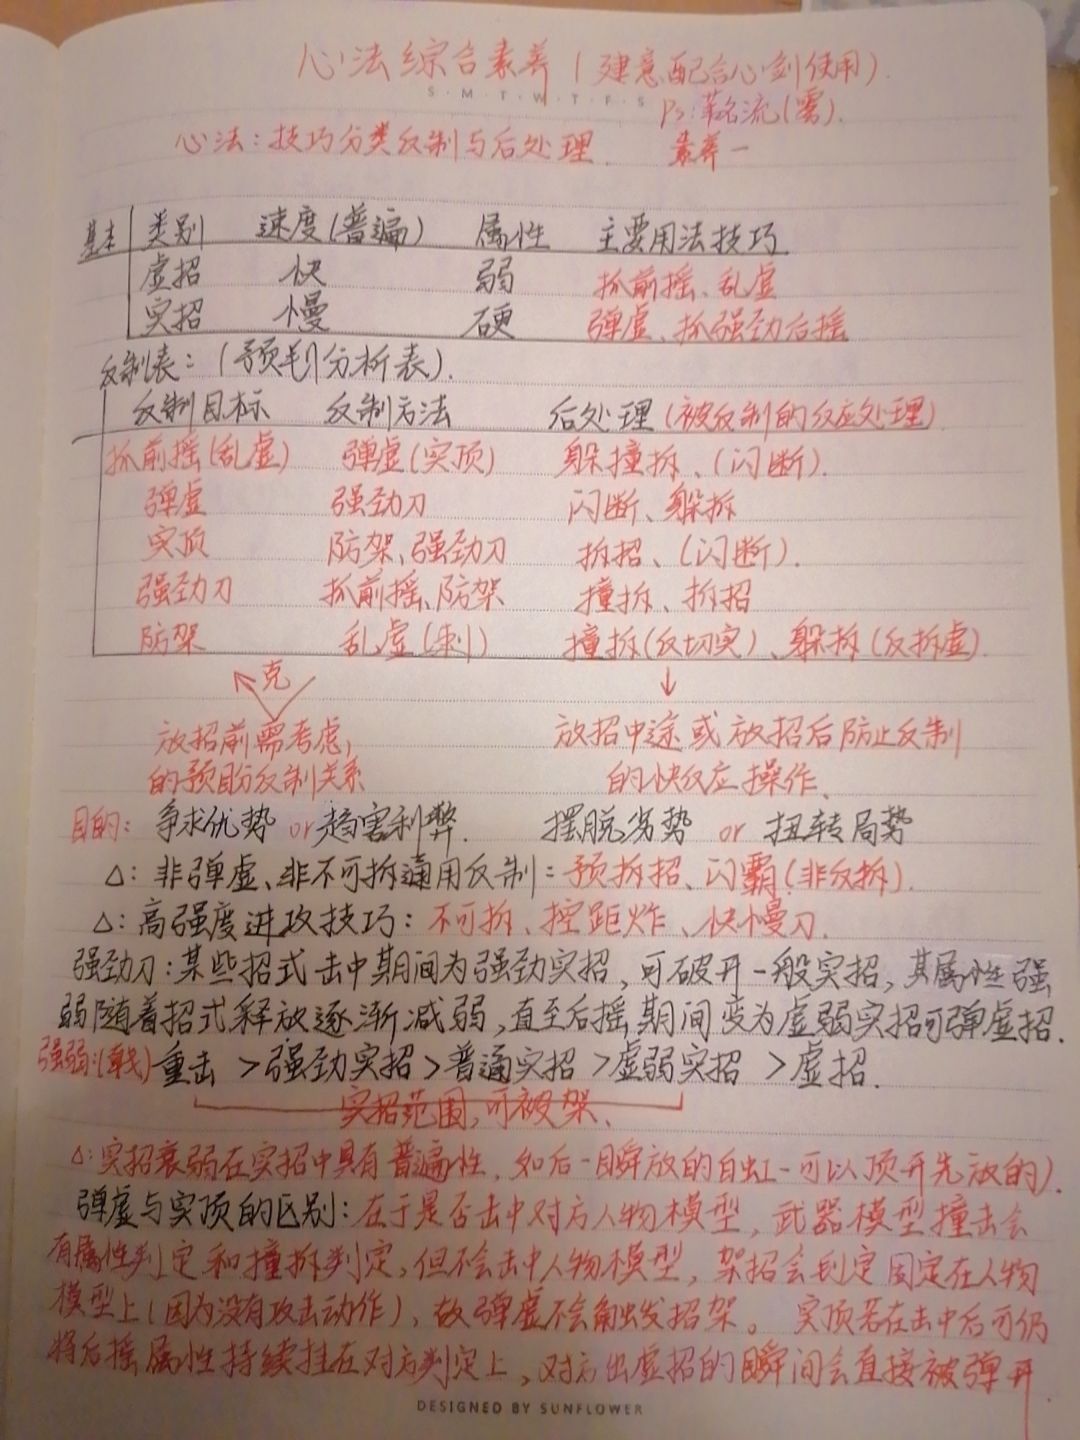 心法综合素养(建意配合心剑使用).
S·M·T·W·T·F·S
Ps:茗流(雾).
心法:技巧分类反制与后处理. 素养一
基本 类别 速度(普遍) 属性 主要用法技巧
虚招 快 弱 抓前摇、乱虚
实招 慢 硬 弹虚、抓强劲后摇
反制表:(预判分析表).
反制目标 反制方法 后处理(被反制的反应处理)
抓前摇(乱虚) 弹虚(实顶) 躲撞拆、(闪断).
弹虚 强劲刀 闪断、躲拆
实顶 防架、强劲刀 拆招、(闪断).
强劲刀 抓前摇、防架 撞拆、拆招
防架 乱虚(刺) 撞拆(反切实)、躲拆(反拆虚).
克
放招前需考虑, 放招中途或放招后防止反制
的预盼反制关系 的快反应操作、
目的: 争求优势 or 趋害利弊. 摆脱劣势 or 扭转局势
△: 非弹虚、非不可拆通用反制:预拆招、闪霸(非反拆).
△: 高强度进攻技巧: 不可拆、控距炸、快慢刀.
强劲刀:某些招式击中期间为强劲实招,可破开一般实招,其属性强
弱随着招式释放逐渐减弱,直至后摇期间变为虚弱实招可弹虚招.
强弱:(戟)重击 >强劲实招>普通实招>虚弱实招 >虚招.
实招范围,可被架、
△:实招衰弱在实招中具有普遍性,如后一瞬放的白虹一可以顶开先放的).
弹虚与实顶的区别:在于是否击中对方人物模型,武器模型撞击会
有属性判定和撞拆判定,但不会击中人物模型,架招会判定固定在人物
模型上(因为没有攻击动作),故弹虚不会触发招架。实顶若在击中后可仍
将后摇属性持续挂在对方判定上,对方出虚招的瞬间会直接被弹开.
DESIGNED BY SUNFLOWER